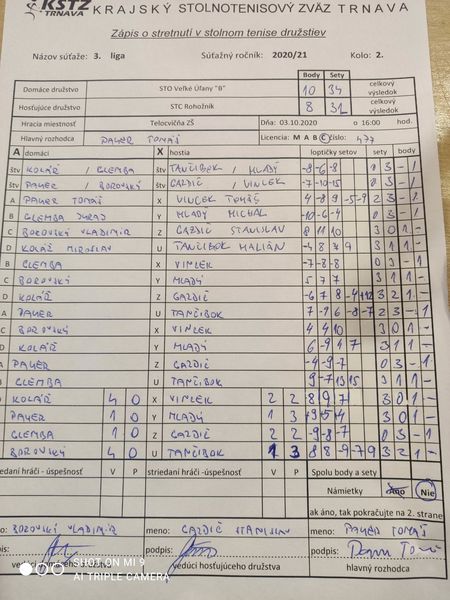 KSTZ TRNAVA KRAJSKÝ STOLNOTENISOVÝ ZVÄZ TRNAVA
Zápis o stretnutí v stolnom tenise družstiev
Názov súťaže: 3. liga Súťažný ročník: 2020/21 Kolo: 2.
Body Sety
Domáce družstvo STO Veľké Úľany "B" 10 34 celkový výsledok
Hosťujúce družstvo STC Rohožník 8 31 celkový výsledok
Hracia miestnosť Telocvičňa ZŠ Dňa: 03.10.2020 o 16:00 hod.
Hlavný rozhodca PAYER TOMÁŠ Licencia: M A B C číslo: 477
A domáci X hostia loptičky setov sety body
štv KOLÁŘ / GLEMBA štv TANČIBOK / MLADÝ -8-6-8 0 3 - 1
štv PAYER / BOROVSKÝ štv GAZDIČ / VINCEK -7-10-15 0 3 - 1
A PAYER TOMÁŠ X VINCEK TOMÁŠ 4-8 9-5-9 2 3 - 1
B GLEMBA JURAJ Y MLADÝ MICHAL -10-6-4 0 3 - 1
C BOROVSKÝ VLADIMÍR Z GAZDIČ STANISLAV 8 11 10 3 0 1 -
D KOLÁŘ MIROSLAV U TANČIBOK MARIÁN -4 8 7 9 3 1 1 -
B GLEMBA X VINCEK -7-8-8 0 3 - 1
C BOROVSKÝ Y MLADÝ 3 1 1 -
D KOLÁŘ Z GAZDIČ -6 7 8 -4 +12 3 2 1 -
A PAYER U TANČIBOK 2 3 - 1
C BOROVSKÝ X VINCEK 4 4 10 3 0 1 -
D KOLÁŘ Y MLADÝ 6-9 4 7 3 1 1 -
A PAYER Z GAZDIČ -4-9-7 0 3 - 1
GLEMBA U TANČIBOK 9-7 13 15 3 1 1 -
KOLÁŘ 4 0 X VINCEK 2 2 8 9 7 3 0 1 -
PAYER 1 0 Y MLADÝ 1 3 3 0 1 -
GLEMBA 1 0 Z GAZDIČ 2 2 -9-8-7 0 3 - 1
BOROVSKÝ 4 0 U TANČIBOK 1 3 8 8-9-7 9 3 2 1 -
iedaní hráči - úspešnosť V P striedaní hráči -úspešnosť V P Spolu body a sety
Námietky Áno Nie
ak áno, tak pokračujte na 2. strane
no: BOROVSKÝ VLADIMÍR meno: GAZDIČ STANISLAV meno: PAYER TOMÁŠ
pis: podpis: podpis:
vedúci hosťujúceho družstva hlavný rozhodca
SHOT ON MI 9
AI TRIPLE CAMERA